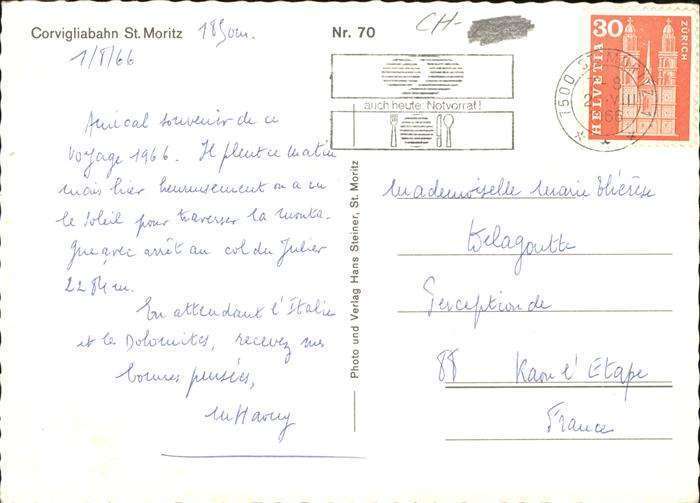 Corvigliabahn St. Moritz 1850m.
1/8/66
Amical souvenir de ce
voyage 1966. Il pleut ce matin
mais hier heureusement on a eu
le soleil pour traverser la monta-
gne avec arrêt au col du Julier
2284m.
En attendant l'Italie
et les Dolomites, recevez mes
bonnes pensées,
Photo und Verlag Hans Steiner, St. Moritz
Nr. 70
CH-
auch heute: Notvorrat!
7500 ST. MORITZ 1
VIII
66
30
HELVETIA
ZÜRICH
Mademoiselle Marie Thérèse
Delagoutte
Perception de
88 Raon l'Etape
France